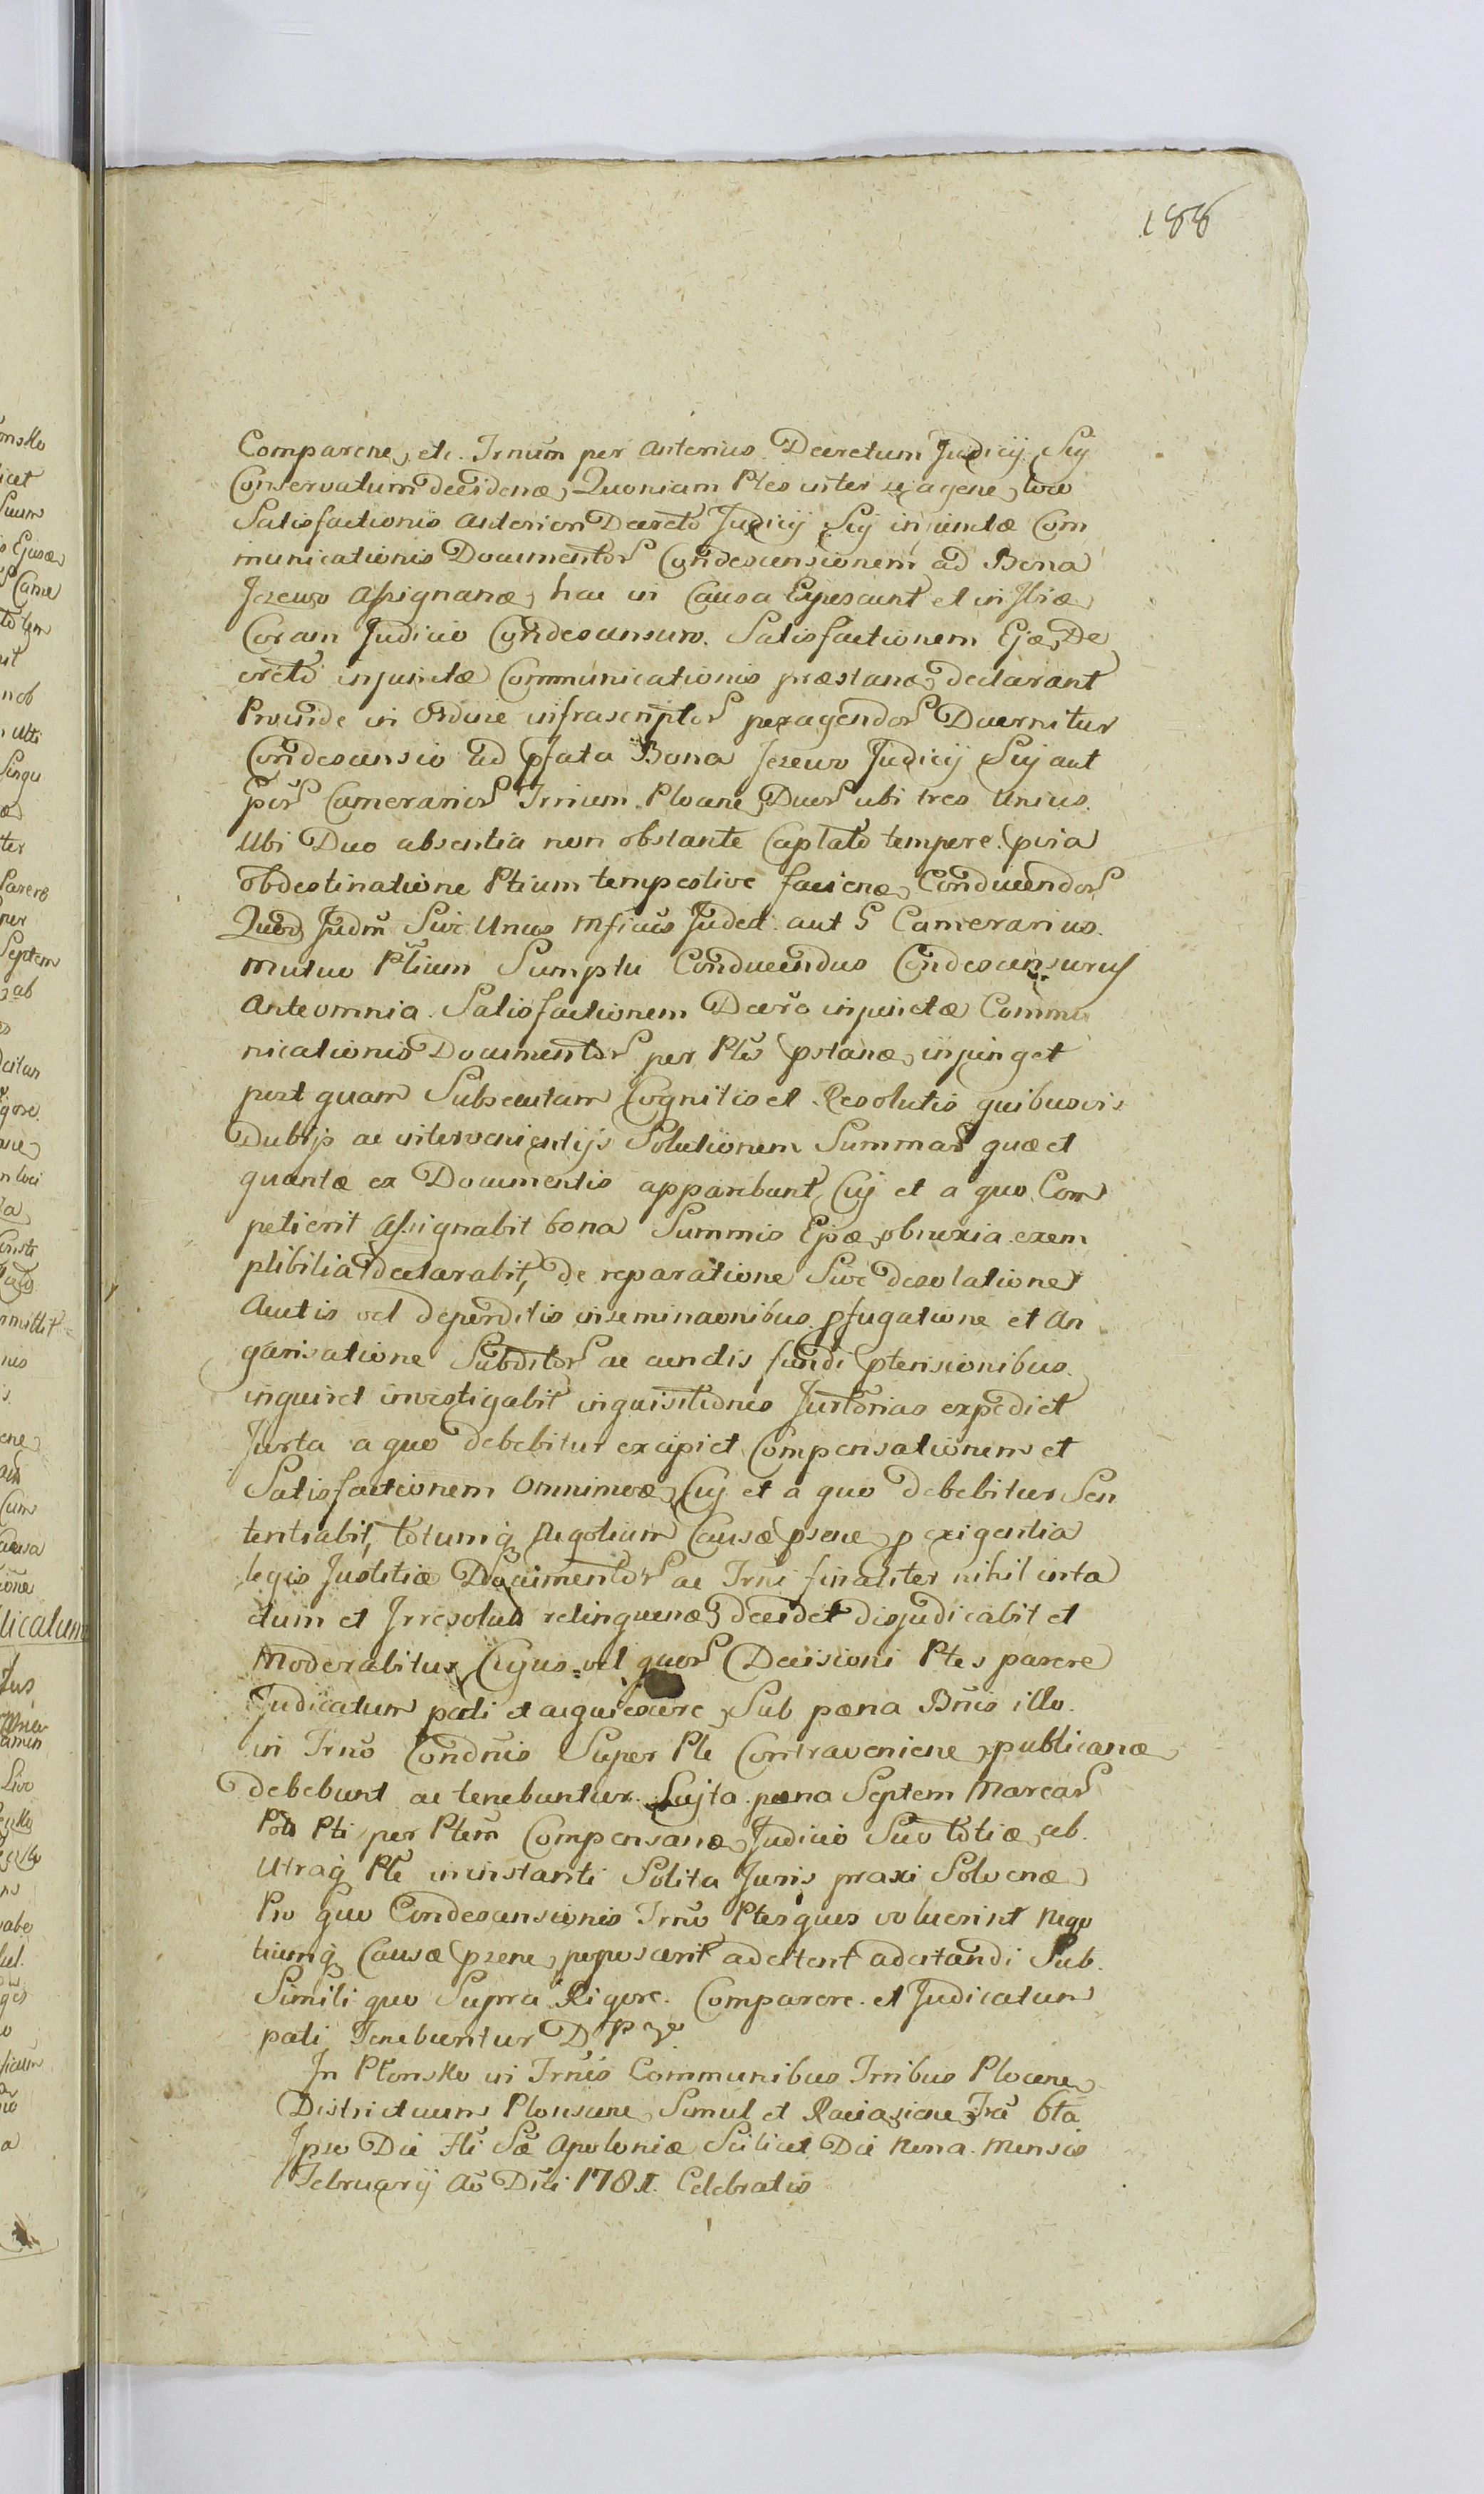 188
Comparene, etc. Trnūm per anterius Decretum Judicij Sūj
Conservatum decidenæ, Quoniam Ptes inter se agene, loco
Satisfactionis anteriori Decreto Judicij Sūj injunctæ Com
municationis Documentor Condescensionem ad Bona
Jezewo Assignanæ, hac in Causa Expescunt et in
Coram Judicio Condescensuro. Satisfactionem Ejæ, De
creto injunctæ Communicationis præstanæ, declarant
Proinde in Ordine infrascriptor peragendor Decernitur
Condescensio ad pfata Bona Jezewo Judicij Sūj aut
Camerarior Trrium Plocene, Duor ubi tres Unius.
Ubi Duo absentia non obstante Captato tempore pvia
obdestinatione Ptium tempestive facienæ, Conducendor
Quod Judm Sive Unus Mficus Judex aut G Camerarius.
mutuo Ptium Sumptu Conducendus Condescensurus
Ante omnia Satisfactionem Decro injunctæ Commu
nicationis Documentor per Ptes pstanæ, injunget
post quam Subsecutam Cognitis et Resolutis quibusvis
Dubijs ac intervenientijs Solutionem Summar quæ et
quantæ ex Documentis apparebunt, Cuj et a quo Com
petierit Assignabit bona Summis Ejsæ, obnoxia exem
ptibilia declarabit, de reparatione Sive desolatione
Auctis vel deperditis inseminaonibus pfugatione et An
garisatione Subditor ac cunctis fundi ptensionibus.
inquiret investigabit inquisitiones Juratorias expediet
Jurta a quo debebitur excipiet Compensationem et
Satisfactionem omnimodæ, Cuj et a quo debebitur Sen
tentiabit, totumq Negotium Causæ psene, p exigentia
legis Justitiæ Documentor ac Trni finaliter nihil inta
ctum et Irresolut relinquenæ, decidet disjudicabit et
Moderabitur, Cujus vel quor Decisioni Ptes parere
Judicatum pati et acquiescere, Sub pæna Bnis illo.
in Trno Condnis Super Pte Contraveniene, publicanæ
debebunt ac tenebuntur. Lujta pæna Septem Marcar
Pti per Ptem Compensanæ, Judicio Suo totiæ, ab.
Utraq Pte in instanti Solita Juris praxi Solvenæ
Pro quo Condescensionis Trno Ptes quos voluerint Nego
tiumq Causæ psene, poposcerit adcitent adcitandi Sub.
Simili quo Supra Rigore. Comparere et Judicatum
pati Tenebuntur D P
In Płonsko in Trnis Communibus Trribus Plocene,
Districtuum Plonscene, Simul et Raciąziene, Fra 6ta
Ipso Die Fti Sæ Apoloniæ Scilicet Die Nona Mensis
Februarij Aō Dni 1781. Celebratis